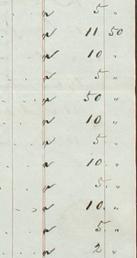 " 5 "
" 11 50
" 10 "
" 5 "
" 50 "
" 10 "
" 5 "
" 10 "
" 5 "
" 10 "
" 5 "
" 2 "